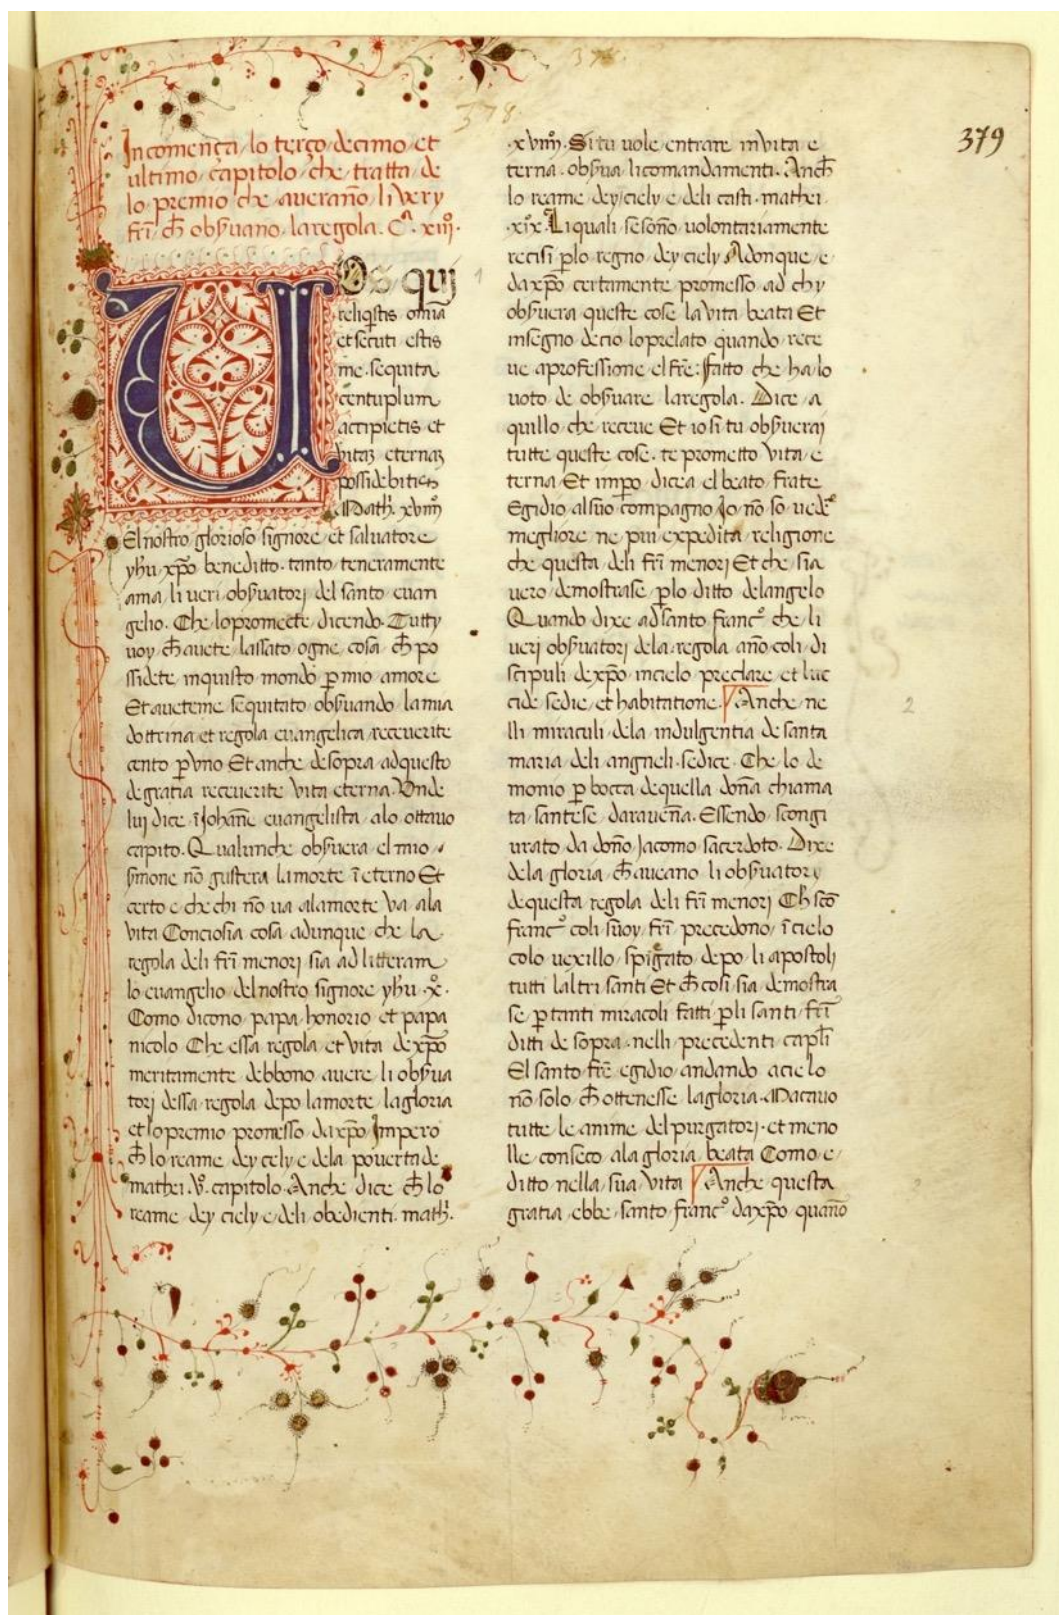 378
378
379
Incomença lo terço decimo et
ultimo capitolo che tratta de
lo premio che averaño li very
fri ch obsuano laregola. C.ª xiij.
VOs qui
reliqstis omia
et secuti estis
me. sequita
centuplum
accipietis et
vitaz eternaz
possidebitis
Math. xviiij
El nostro glorioso signore et salvatore
yhu xpo beneditto. tanto teneramente
ama li veri obsuatorj del santo evan
gelio. Che lopromecte dicendo. Tutty
voy ch avete lassato ogne cosa ch po
ssidete inquisto mondo p mio amore
Et aveteme sequitato obsuando lamia
dottrina et regola evangelica receverite
cento p vno Et anche desopra adquesto
degratia receverite vita eterna. Vnde
luj dice i Johane evangelista alo ottavo
capito. Qualunche obsuera el mio
smone no gustera lamorte i eterno Et
certo e che chi no va alamorte va ala
vita Conciosia cosa adunque che la
regola deli fri menorj sia ad litteram
lo evangelio delnostro signore yhu x.
Como dicono papa honorio et papa
nicolo Che essa regola et vita dexpo
meritamente debbono avere li obsua
torj dessa regola depo lamorte lagloria
et lo premio promesso daxpo Impero
ch lo reame dey cely e dela poverta de
mathei .v. capitolo. Anche dice ch lo
reame dey ciely e deli obedienti. math.
.xviiij. Si tu vole entrare invita e
terna. obsua li comandamenti. Anch
lo reame dey ciely e deli casti. mathei.
.xix. Li quali sesono volontariamente
recisi plo regno dey ciely Adonque e
daxpo certamente promesso ad chy
obsuera queste cose la vita beata Et
insegno decio loprelato quando rece
ve aprofessione el fre: fatto che ha lo
voto de obsuare laregola. Dice a
quillo che receve Et io si tu obsueraj
tutte queste cose. te prometto vita e
terna Et impo dicea el beato frate
Egidio alsuo compagno Io no so vede
megliore ne piu expedita religione
che questa deli fri menori Et che sia
vero demostrase plo ditto delangelo
Quando dixe ad santo franc° che li
veri obsuatorj dela regola año coli di
scipuli dexpo incielo preclare et luc
cide sedie et habitatione. Anche ne
lli miraculi dela indulgentia de santa
maria deli angneli sedice. Che lo de
monio p bocca dequella doña chiama
ta santese daraveña. Essendo scongi
urato da doño Jacomo sacerdoto. Dixe
dela gloria ch aveano li obsuatory
dequesta regola deli fri menorj Ch sco
franc° coli suoy fri precedono i cielo
colo vexillo spigato depo li apostoli
tutti laltri santi Et ch cosi sia demostra
se p tanti miracoli fatti pli santi fri
ditti de sopra nelli precedenti capli
El santo fre egidio andando acielo
no solo ch ottenesse lagloria. Macavo
tutte le anime delpurgatorj. et meno
lle conseco ala gloria beata Como e
ditto nella sua vita Anche questa
gratia ebbe santo franc° daxpo quano